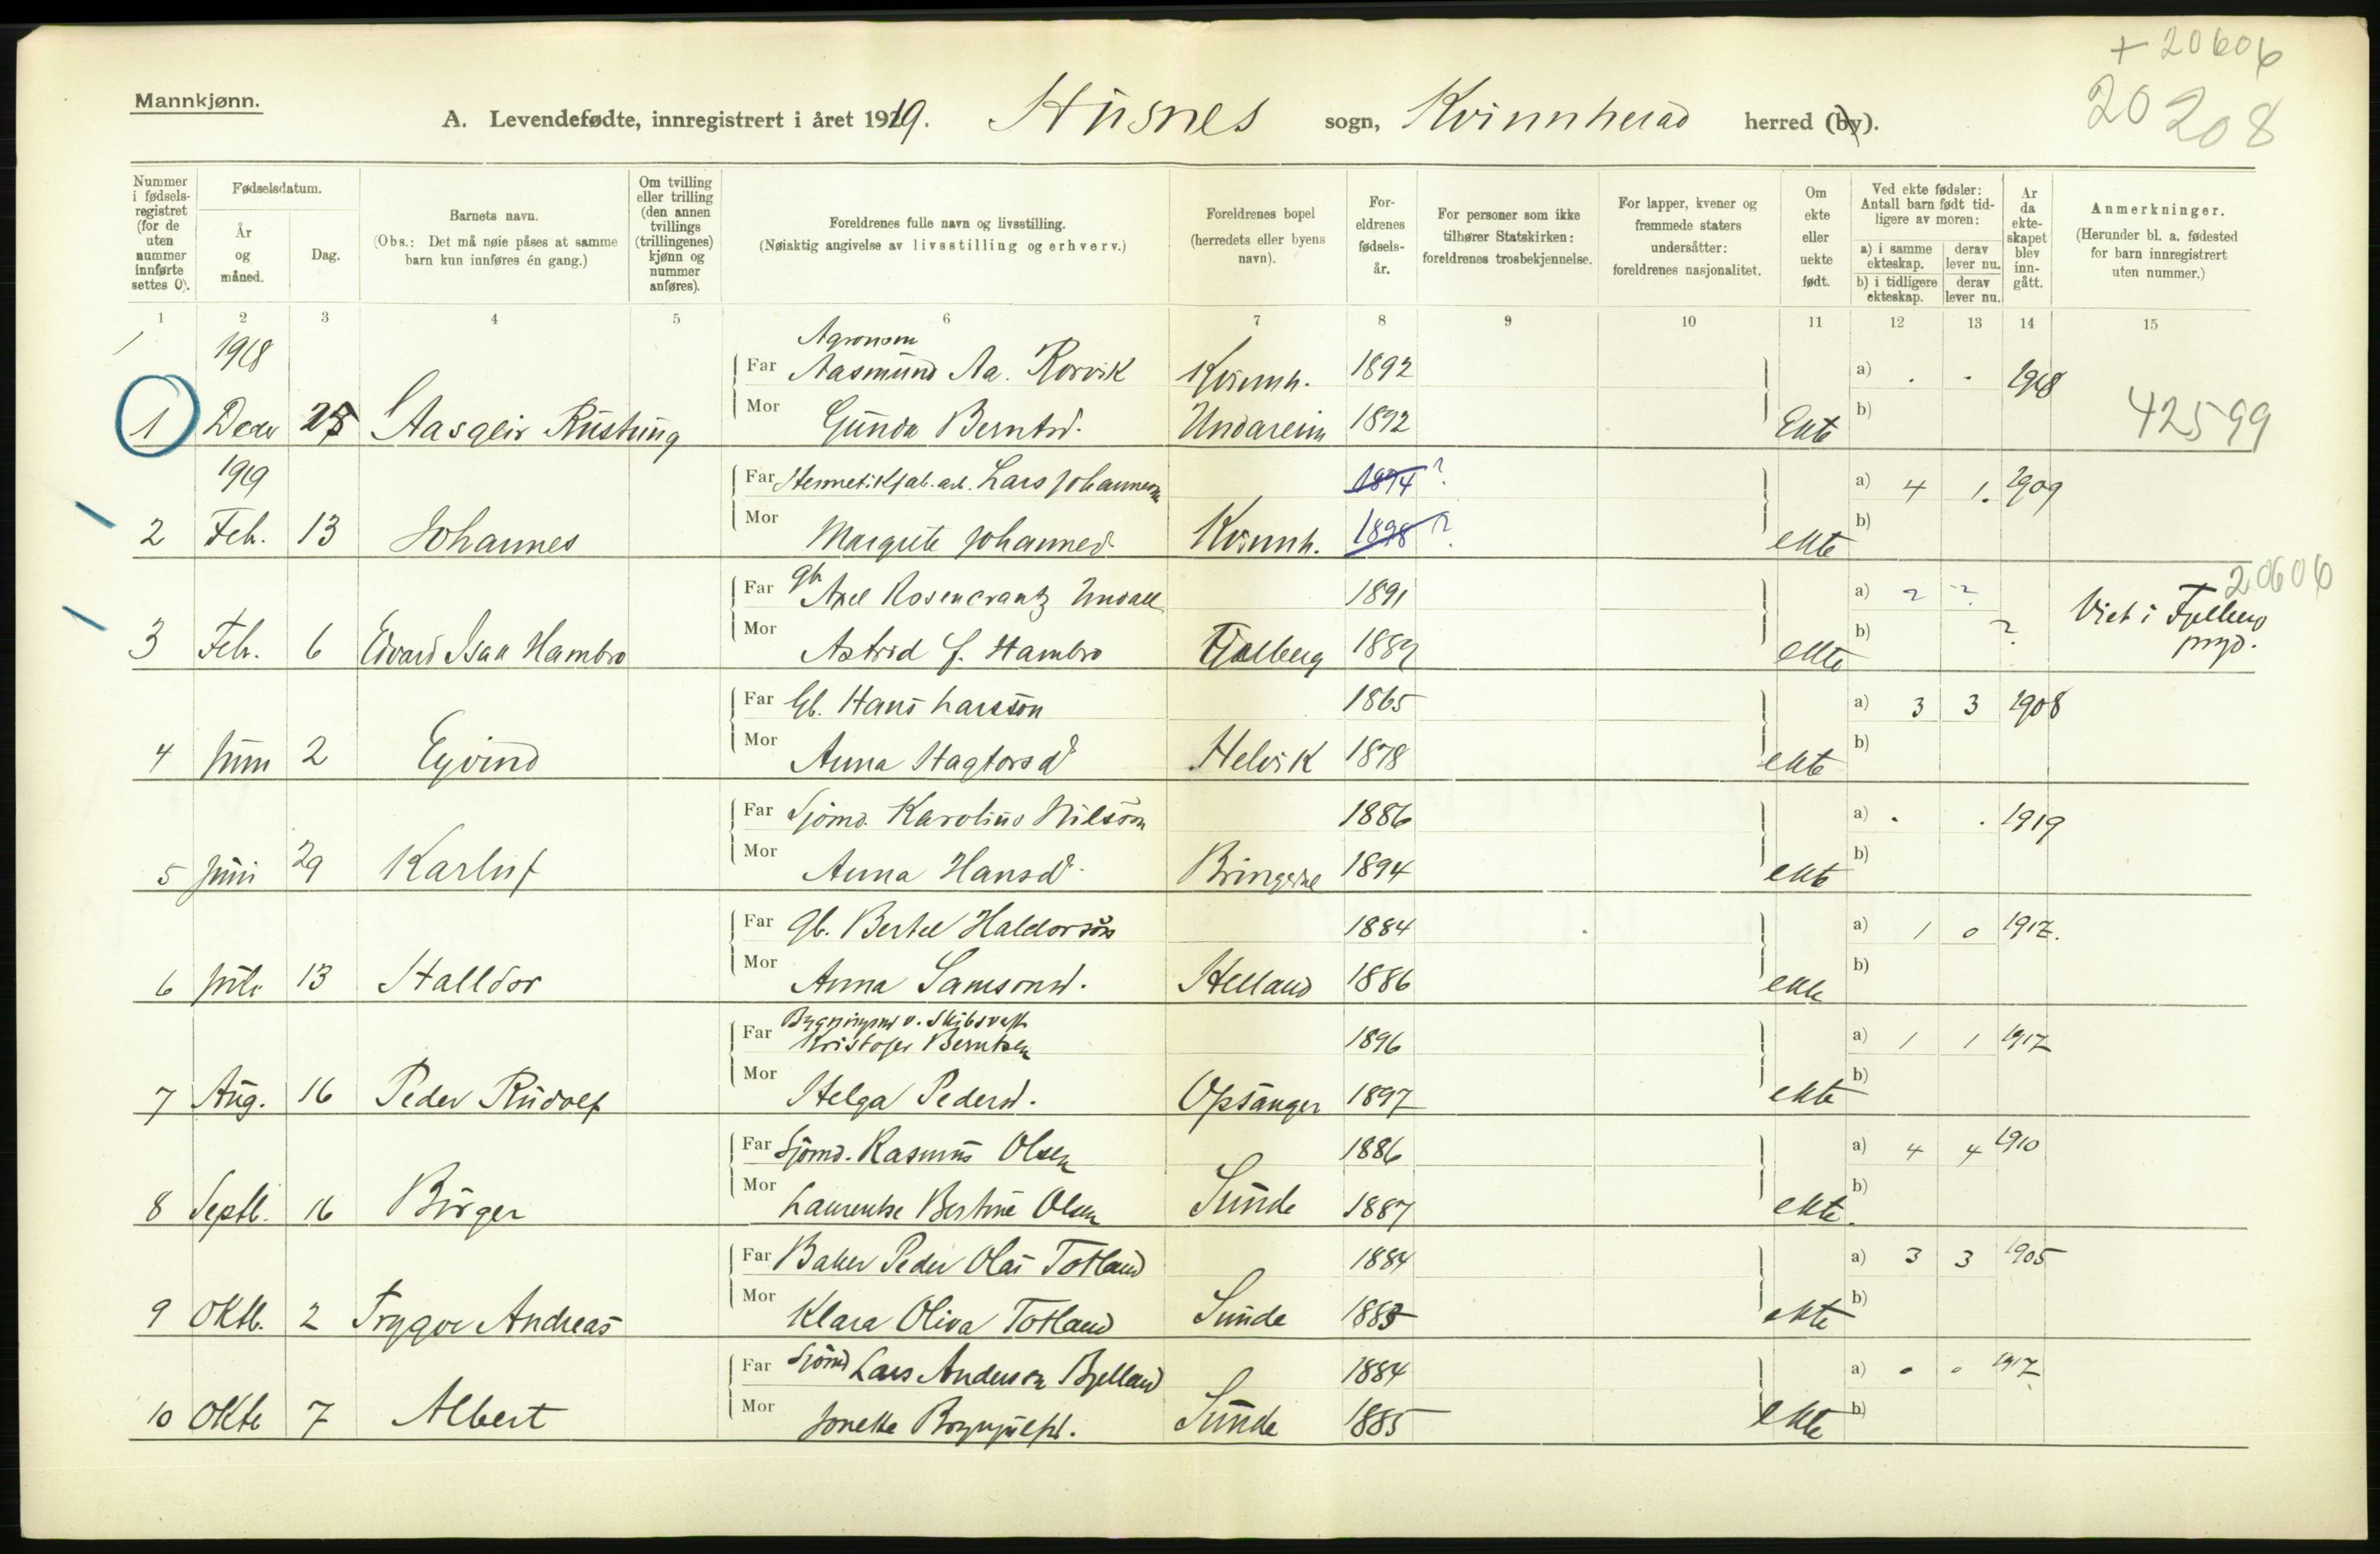 + 20606
20208
Mannkjønn.
A. Levendefødte, innregistrert i året 1919. Husnes sogn, Kvinnherad herred (by).
Nummer i fødselsregistret (for de uten nummer innførte settes 0).
Fødselsdatum.
År og måned.
Dag.
Barnets navn.
(Obs.: Det må nøie påses at samme barn kun innføres én gang.)
Om tvilling eller trilling (den annen tvillings (trillingenes) kjønn og nummer anføres).
Foreldrenes fulle navn og livsstilling.
(Nøiaktig angivelse av livsstilling og erhverv.)
Foreldrenes bopel (herredets eller byens navn).
Foreldrenes fødselsår.
For personer som ikke tilhører Statskirken: foreldrenes trosbekjennelse.
For lapper, kvener og fremmede staters undersåtter: foreldrenes nasjonalitet.
Om ekte eller uekte født.
Ved ekte fødsler: Antall barn født tidligere av moren:
a) i samme ekteskap. derav lever nu.
b) i tidligere ekteskap. derav lever nu.
År da ekteskapet blev inngått.
Anmerkninger.
(Herunder bl. a. fødested for barn innregistrert uten nummer.)
1 2 3 4 5 6 7 8 9 10 11 12 13 14 15
1918 Agronom
Far Aasmund Aa. Rørvik Kvinnh. 1892 a) . . 1918
1 Decbr Aasgeir Rustung Mor Gunda Berntsd. Undareim 1892 Ekte b) 42599
1919 Far Hermetikfab. arb. Lars Johannesen 1874 ? a) 4 1. 1909
2 Feb. 13 Johannes Mor Margrete Johannesd. Kvinnh. 1898 ? ekte b)
20606
Far Gb Axel Rosencrantz Undall 1891 a) ? ? Viet i Fjelberg
3 Feb. 6 Edvard Isak Hambro Mor Astrid J. Hambro Fjelberg 1889 ekte b) ? prgd.
Far Gb. Hans Larsson 1865 a) 3 3 1908
4 Juni 2 Eyvind Mor Anna Hagtorsd Helvik 1878 ekte b)
Far Sjömd. Karolius Nilsson 1886 a) . . 1919
5 Juni 29 Karluf Mor Anna Hansd. Bringedal 1894 ekte b)
Far Gb. Bertel Haldorsön 1884 a) 1 0 1917.
6 Juli 13 Halldor Mor Anna Samsonsd. Helland 1886 ekte b)
Far Kristofer Berntsen 1896 a) 1 1 1917
7 Aug. 16 Peder Rudolf Mor Helga Pedersd. Opsanger 1897 ekte b)
Far Sjömd. Rasmus Olsen 1886 a) 4 4 1910
8 Septb. 16 Birger Mor Laurentse Bertine Olsen Sunde 1887 ekte. b)
Far Baker Peder Olai Totland 1884 a) 3 3 1905
9 Oktb. 2 Trygve Andreas Mor Klara Oliva Totland Sunde 1885 ekte b)
Far Sjömd Lars Anderson Bjelland 1884 a) . . 1917
10 Oktb 7 Albert Mor Jonetta Brynjulfsd. Sunde 1885 ekte b)